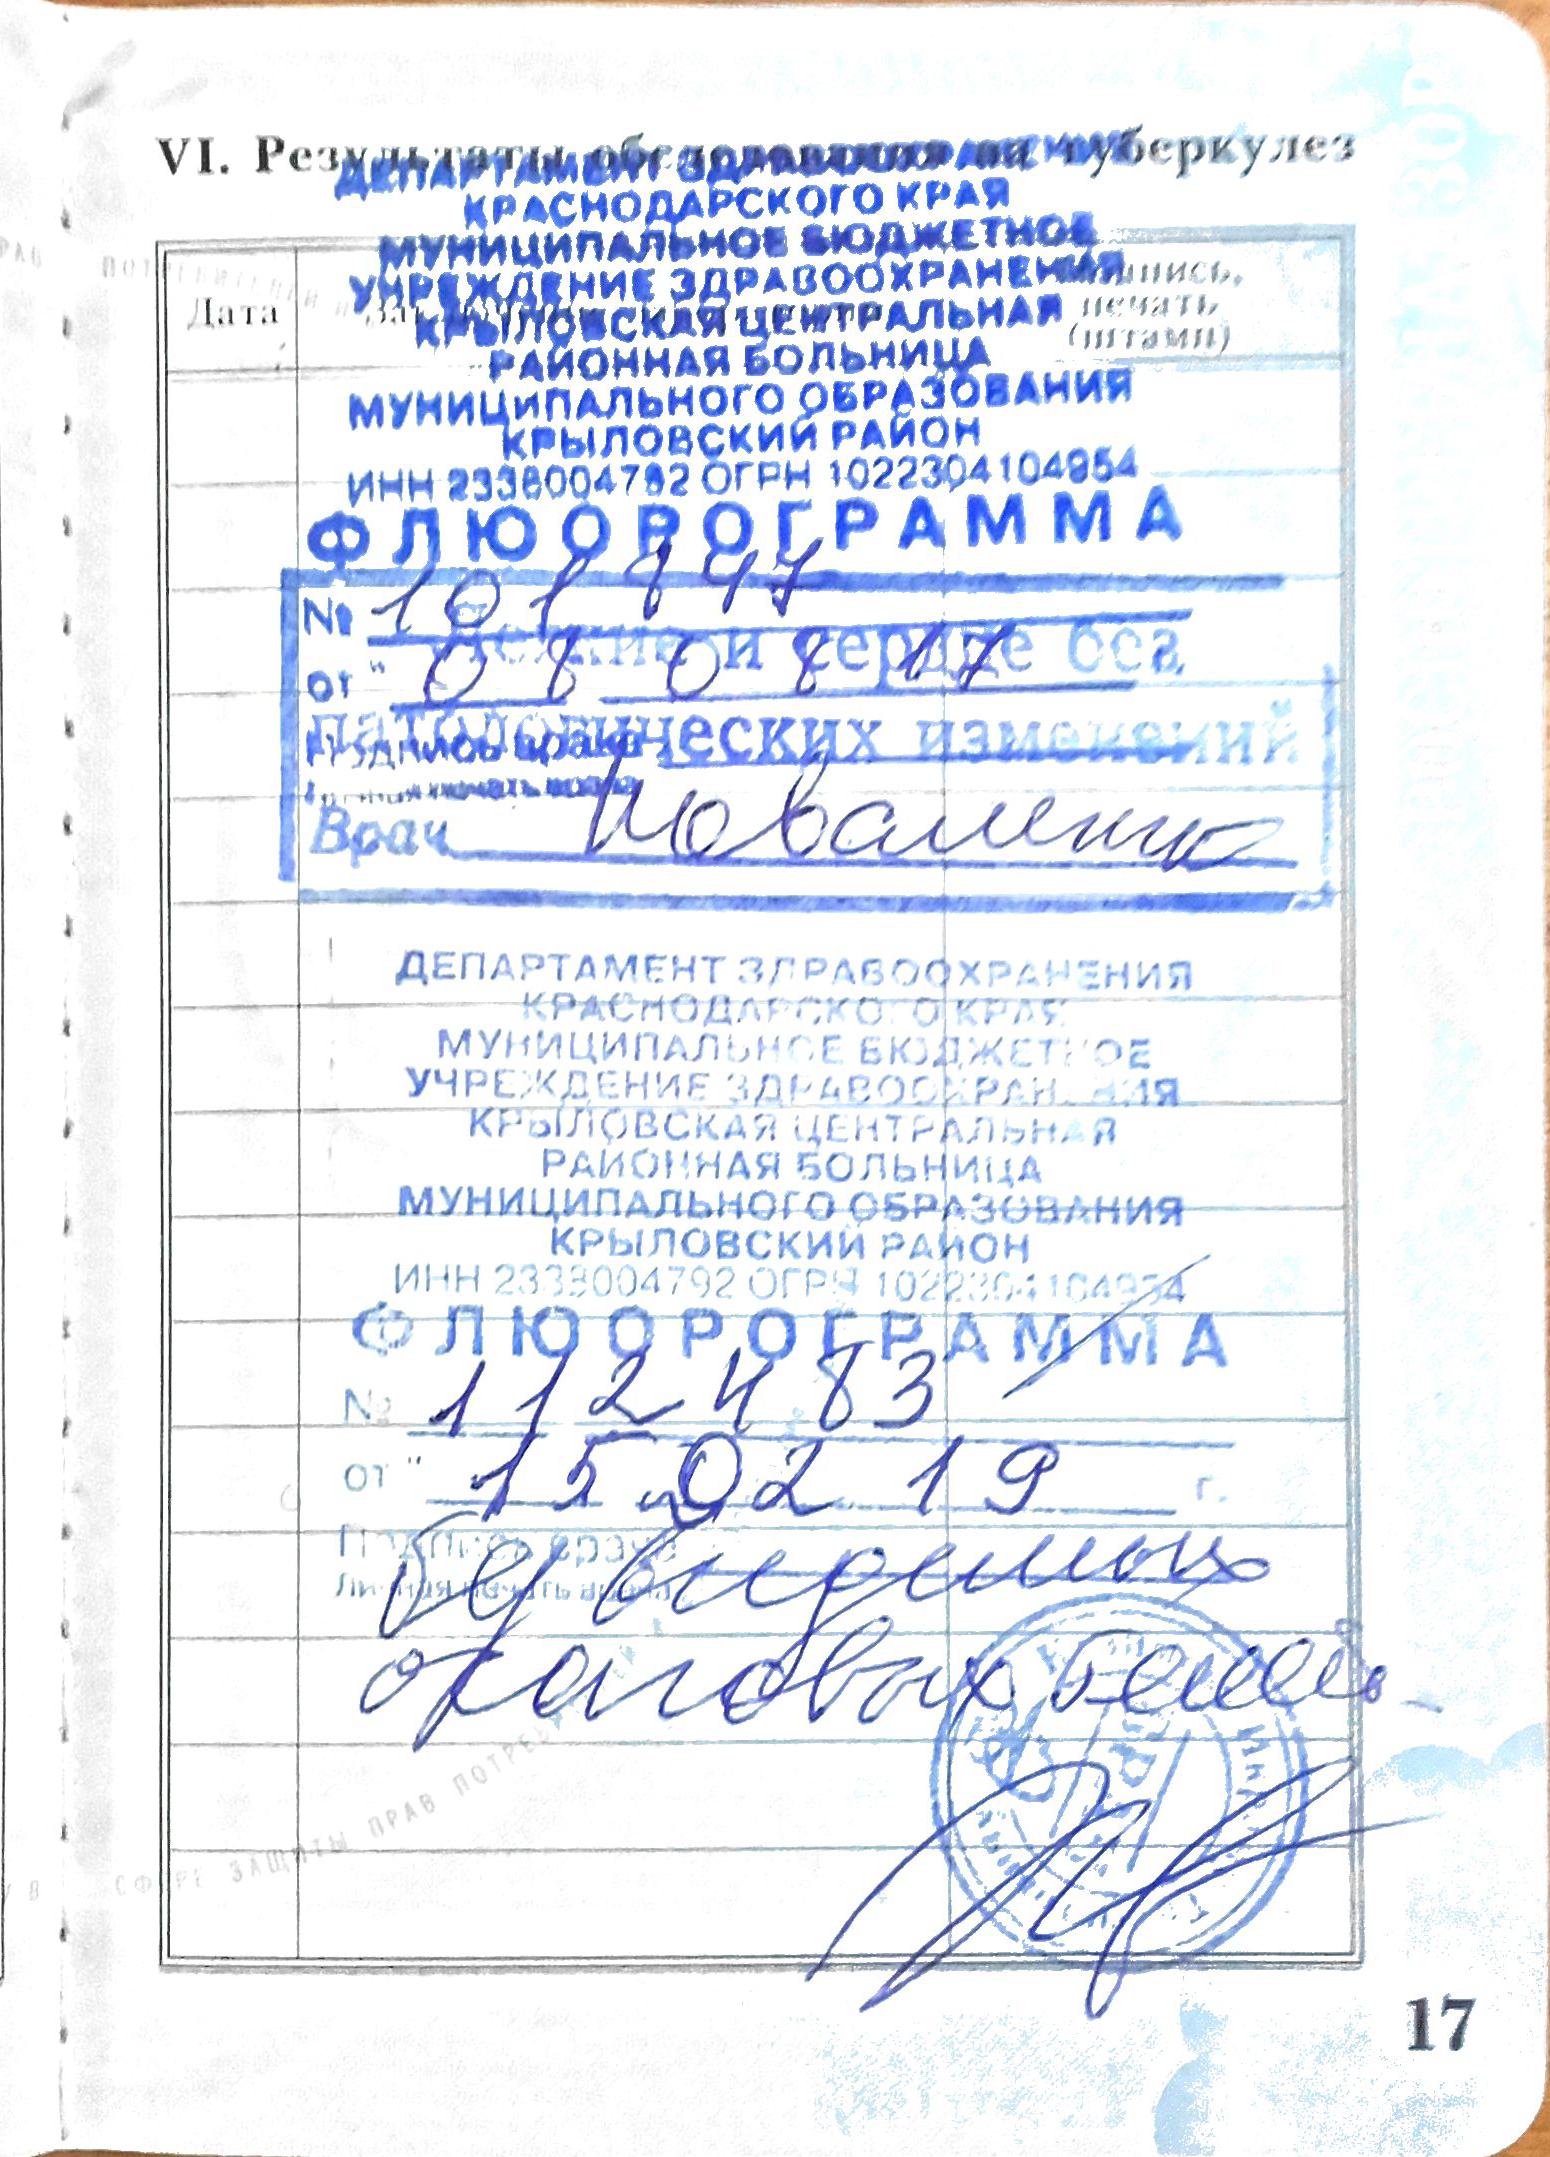 VI. Результаты обследования на туберкулез
Дата
подпись,
печать
(штамп)
ДЕПАРТАМЕНТ ЗДРАВООХРАНЕНИЯ
КРАСНОДАРСКОГО КРАЯ
МУНИЦИПАЛЬНОЕ БЮДЖЕТНОЕ
УЧРЕЖДЕНИЕ ЗДРАВООХРАНЕНИЯ
КРЫЛОВСКАЯ ЦЕНТРАЛЬНАЯ
РАЙОННАЯ БОЛЬНИЦА
МУНИЦИПАЛЬНОГО ОБРАЗОВАНИЯ
КРЫЛОВСКИЙ РАЙОН
ИНН 2338004792 ОГРН 1022304104954
ФЛЮОРОГРАММА
№ 101847
и сердце без
от " 08 08 17
патологических изменений
Подпись врача
Личная печать врача
Врач Коваленко
ДЕПАРТАМЕНТ ЗДРАВООХРАНЕНИЯ
КРАСНОДАРСКОГО КРАЯ
МУНИЦИПАЛЬНОЕ БЮДЖЕТНОЕ
УЧРЕЖДЕНИЕ ЗДРАВООХРАНЕНИЯ
КРЫЛОВСКАЯ ЦЕНТРАЛЬНАЯ
РАЙОННАЯ БОЛЬНИЦА
МУНИЦИПАЛЬНОГО ОБРАЗОВАНИЯ
КРЫЛОВСКИЙ РАЙОН
ИНН 2338004792 ОГРН 1022304104954
ФЛЮОРОГРАММА
№ 112483
от " 15.02 19 г.
Подпись врача
Личная печать врача
Без видимых
очаговых теней
СФЕРЕ ЗАЩИТЫ ПРАВ ПОТРЕБИТЕЛЕЙ
17